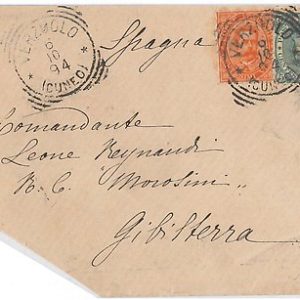 VERZUOLO
8
10
94
(CUNEO)
Spagna
VERZUOLO
8
10
94
(CUNEO)
Comandante
Leone Reynaudi
R. C. "Morosini"
Gibilterra